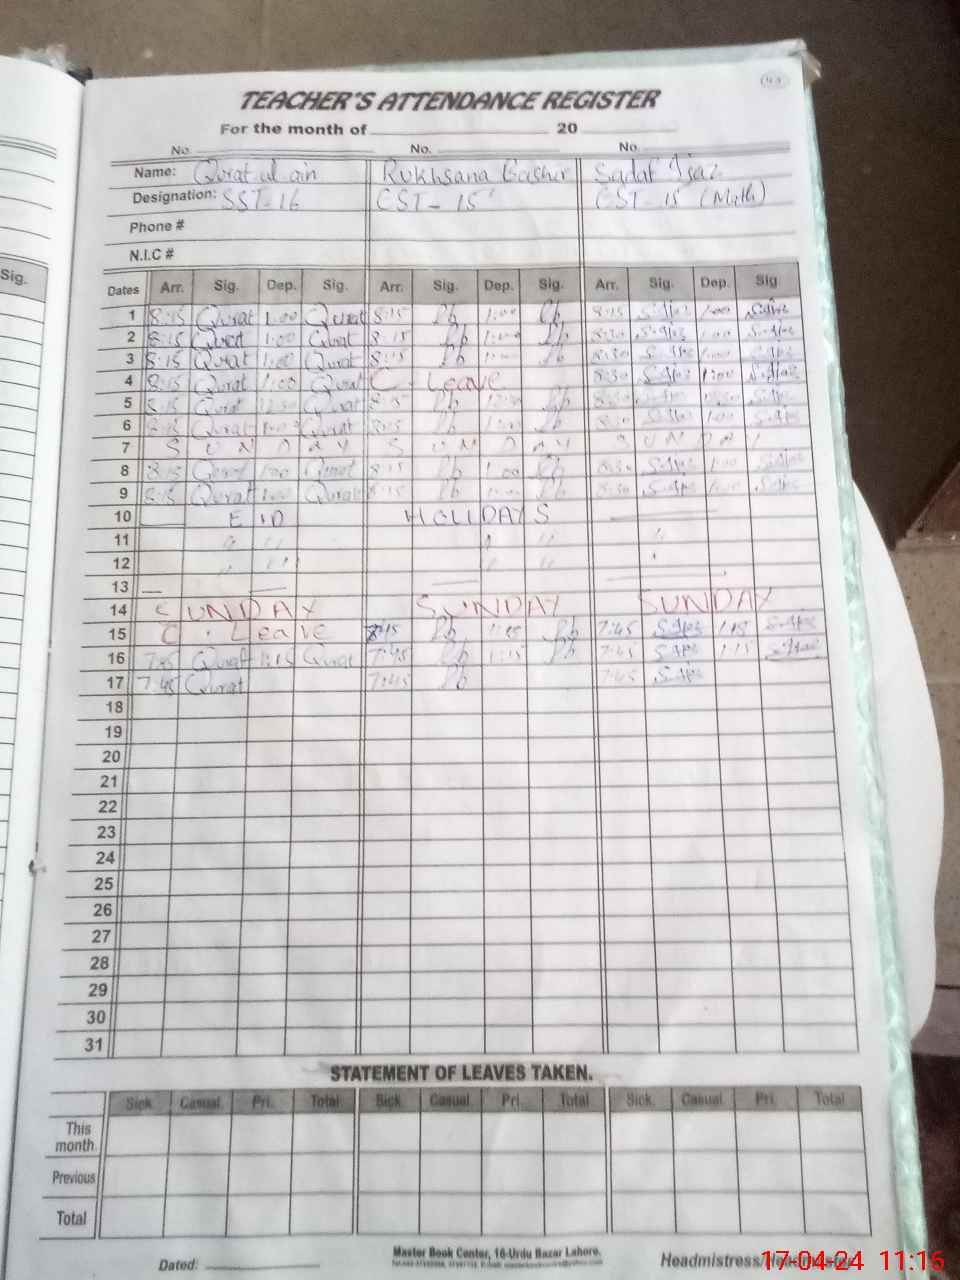 TEACHER'S ATTENDANCE REGISTER
For the month of 20
No. No. No.
Name: Qurat ul ain Rukhsana Bashir Sadaf Ijaz
Designation: SST-16 CST-15 CST-15 (Math)
Phone #
N.I.C #
Sig.
Dates Arr. Sig. Dep. Sig. Arr. Sig. Dep. Sig. Arr. Sig. Dep. Sig
1 8:15 Qurat 1:00 Qurat 8:15 1:00 8:15 1:00
2 8:15 Qurat 1:00 Qurat 8:15 1:00 8:30 1:00
3 8:15 Qurat 1:00 Qurat 8:15 1:00 8:30 1:00
4 8:15 Qurat 1:00 Qurat C. Leave 8:30 1:00
5 8:15 Qurat 12:30 Qurat 8:15 8:30
6 8:15 Qurat 1:00 Qurat 8:15 1:00 8:30 1:00
7 SUNDAY SUNDAY SUNDAY
8 8:15 Qurat 1:00 Qurat 8:15 1:00 8:30 1:00
9 8:15 Qurat 1:00 Qurat 8:15 1:00 8:30 1:00
10 EID HOLIDAYS
11 " " " " "
12 " " " " "
13
14 SUNDAY SUNDAY SUNDAY
15 C. Leave 7:45 1:15 7:45 1:15
16 7:45 Qurat 1:15 Qurat 7:45 1:15 7:45 1:15
17 7:45 Qurat 7:45 7:45
18
19
20
21
22
23
24
25
26
27
28
29
30
31
STATEMENT OF LEAVES TAKEN.
Sick Casual Pri. Total Sick Casual Pri. Total Sick Casual Pri. Total
This month.
Previous
Total
Dated:
Master Book Center, 16-Urdu Bazar Lahore.
Headmistress/Headmaster
17-04-24 11:16